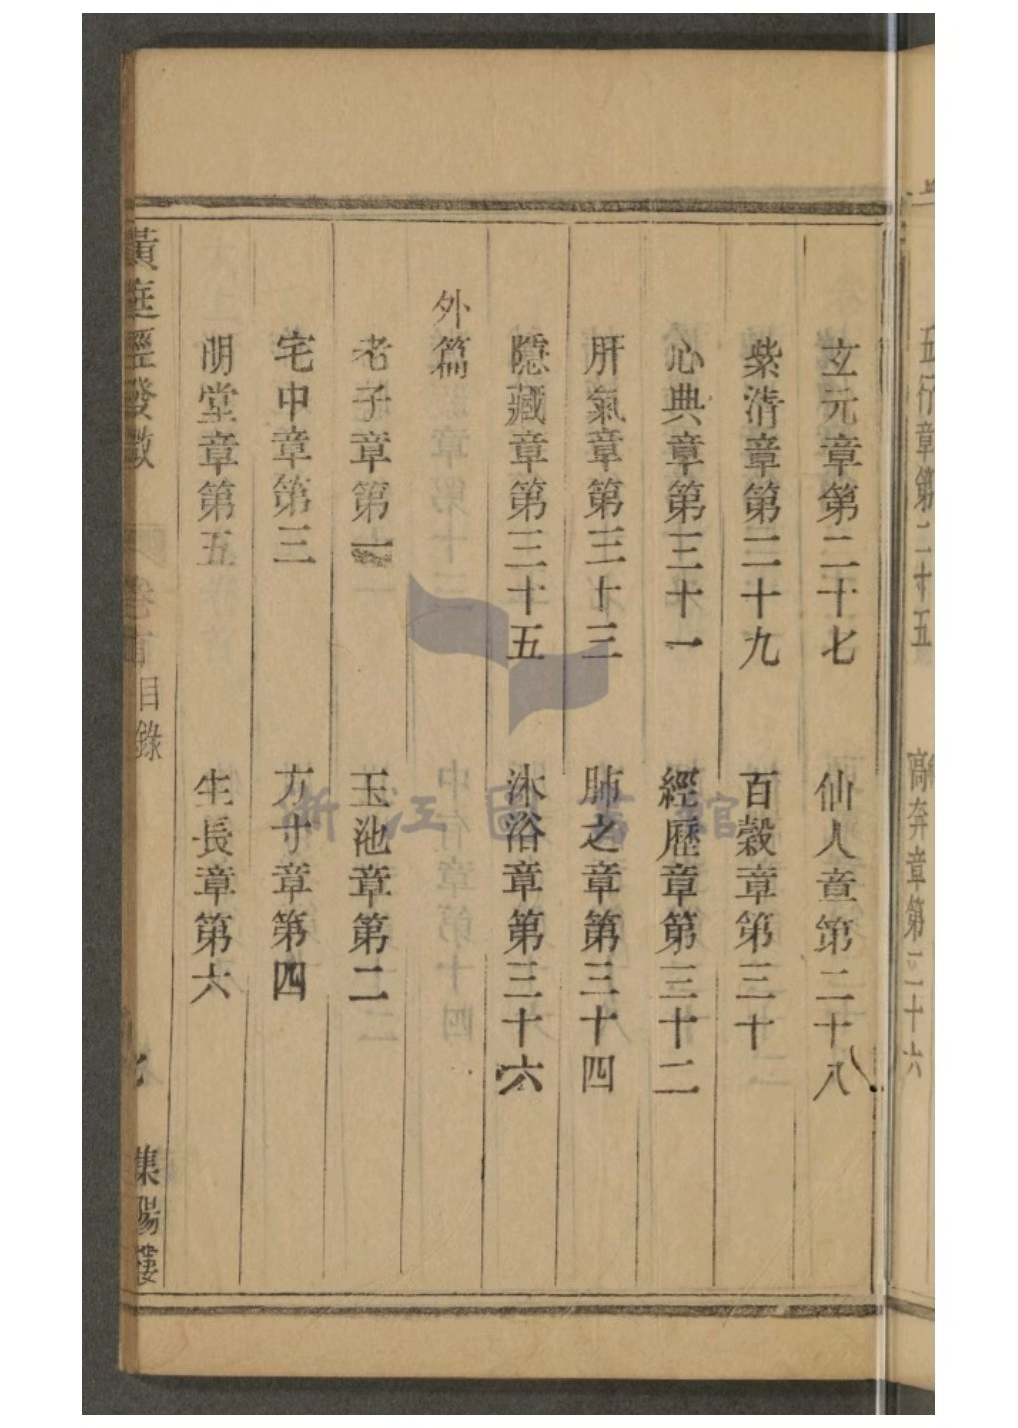 五行章第二十五　高奔章第二十六
玄元章第二十七　仙人章第二十八
紫清章第二十九　百穀章第三十
心典章第三十一　經歷章第三十二
肝氣章第三十三　肺之章第三十四
隱藏章第三十五　沐浴章第三十六
外篇
老子章第一　玉池章第二
宅中章第三　方寸章第四
明堂章第五　生長章第六
黃庭經發微　卷首　目錄　集陽樓
浙江圖書館